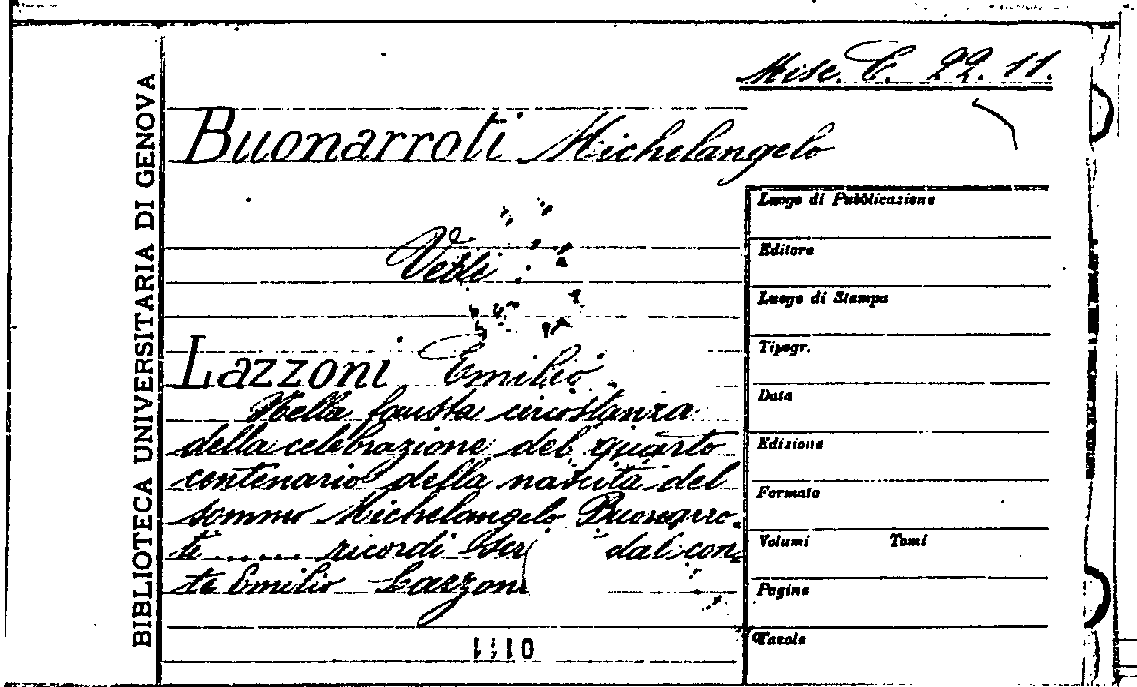 Misc. C. 22. 11.
BIBLIOTECA UNIVERSITARIA DI GENOVA
Buonarroti Michelangelo
Vedi:
Lazzoni Emilio
Nella fausta circostanza
della celebrazione del quarto
centenario della nascita del
sommo Michelangelo Buonarro-
ti ..... ricordi dal con-
te Emilio Lazzoni
Luogo di Pubblicazione
Editore
Luogo di Stampa
Tipogr.
Data
Edizione
Formato
Volumi Tomi
Pagine
Tavole